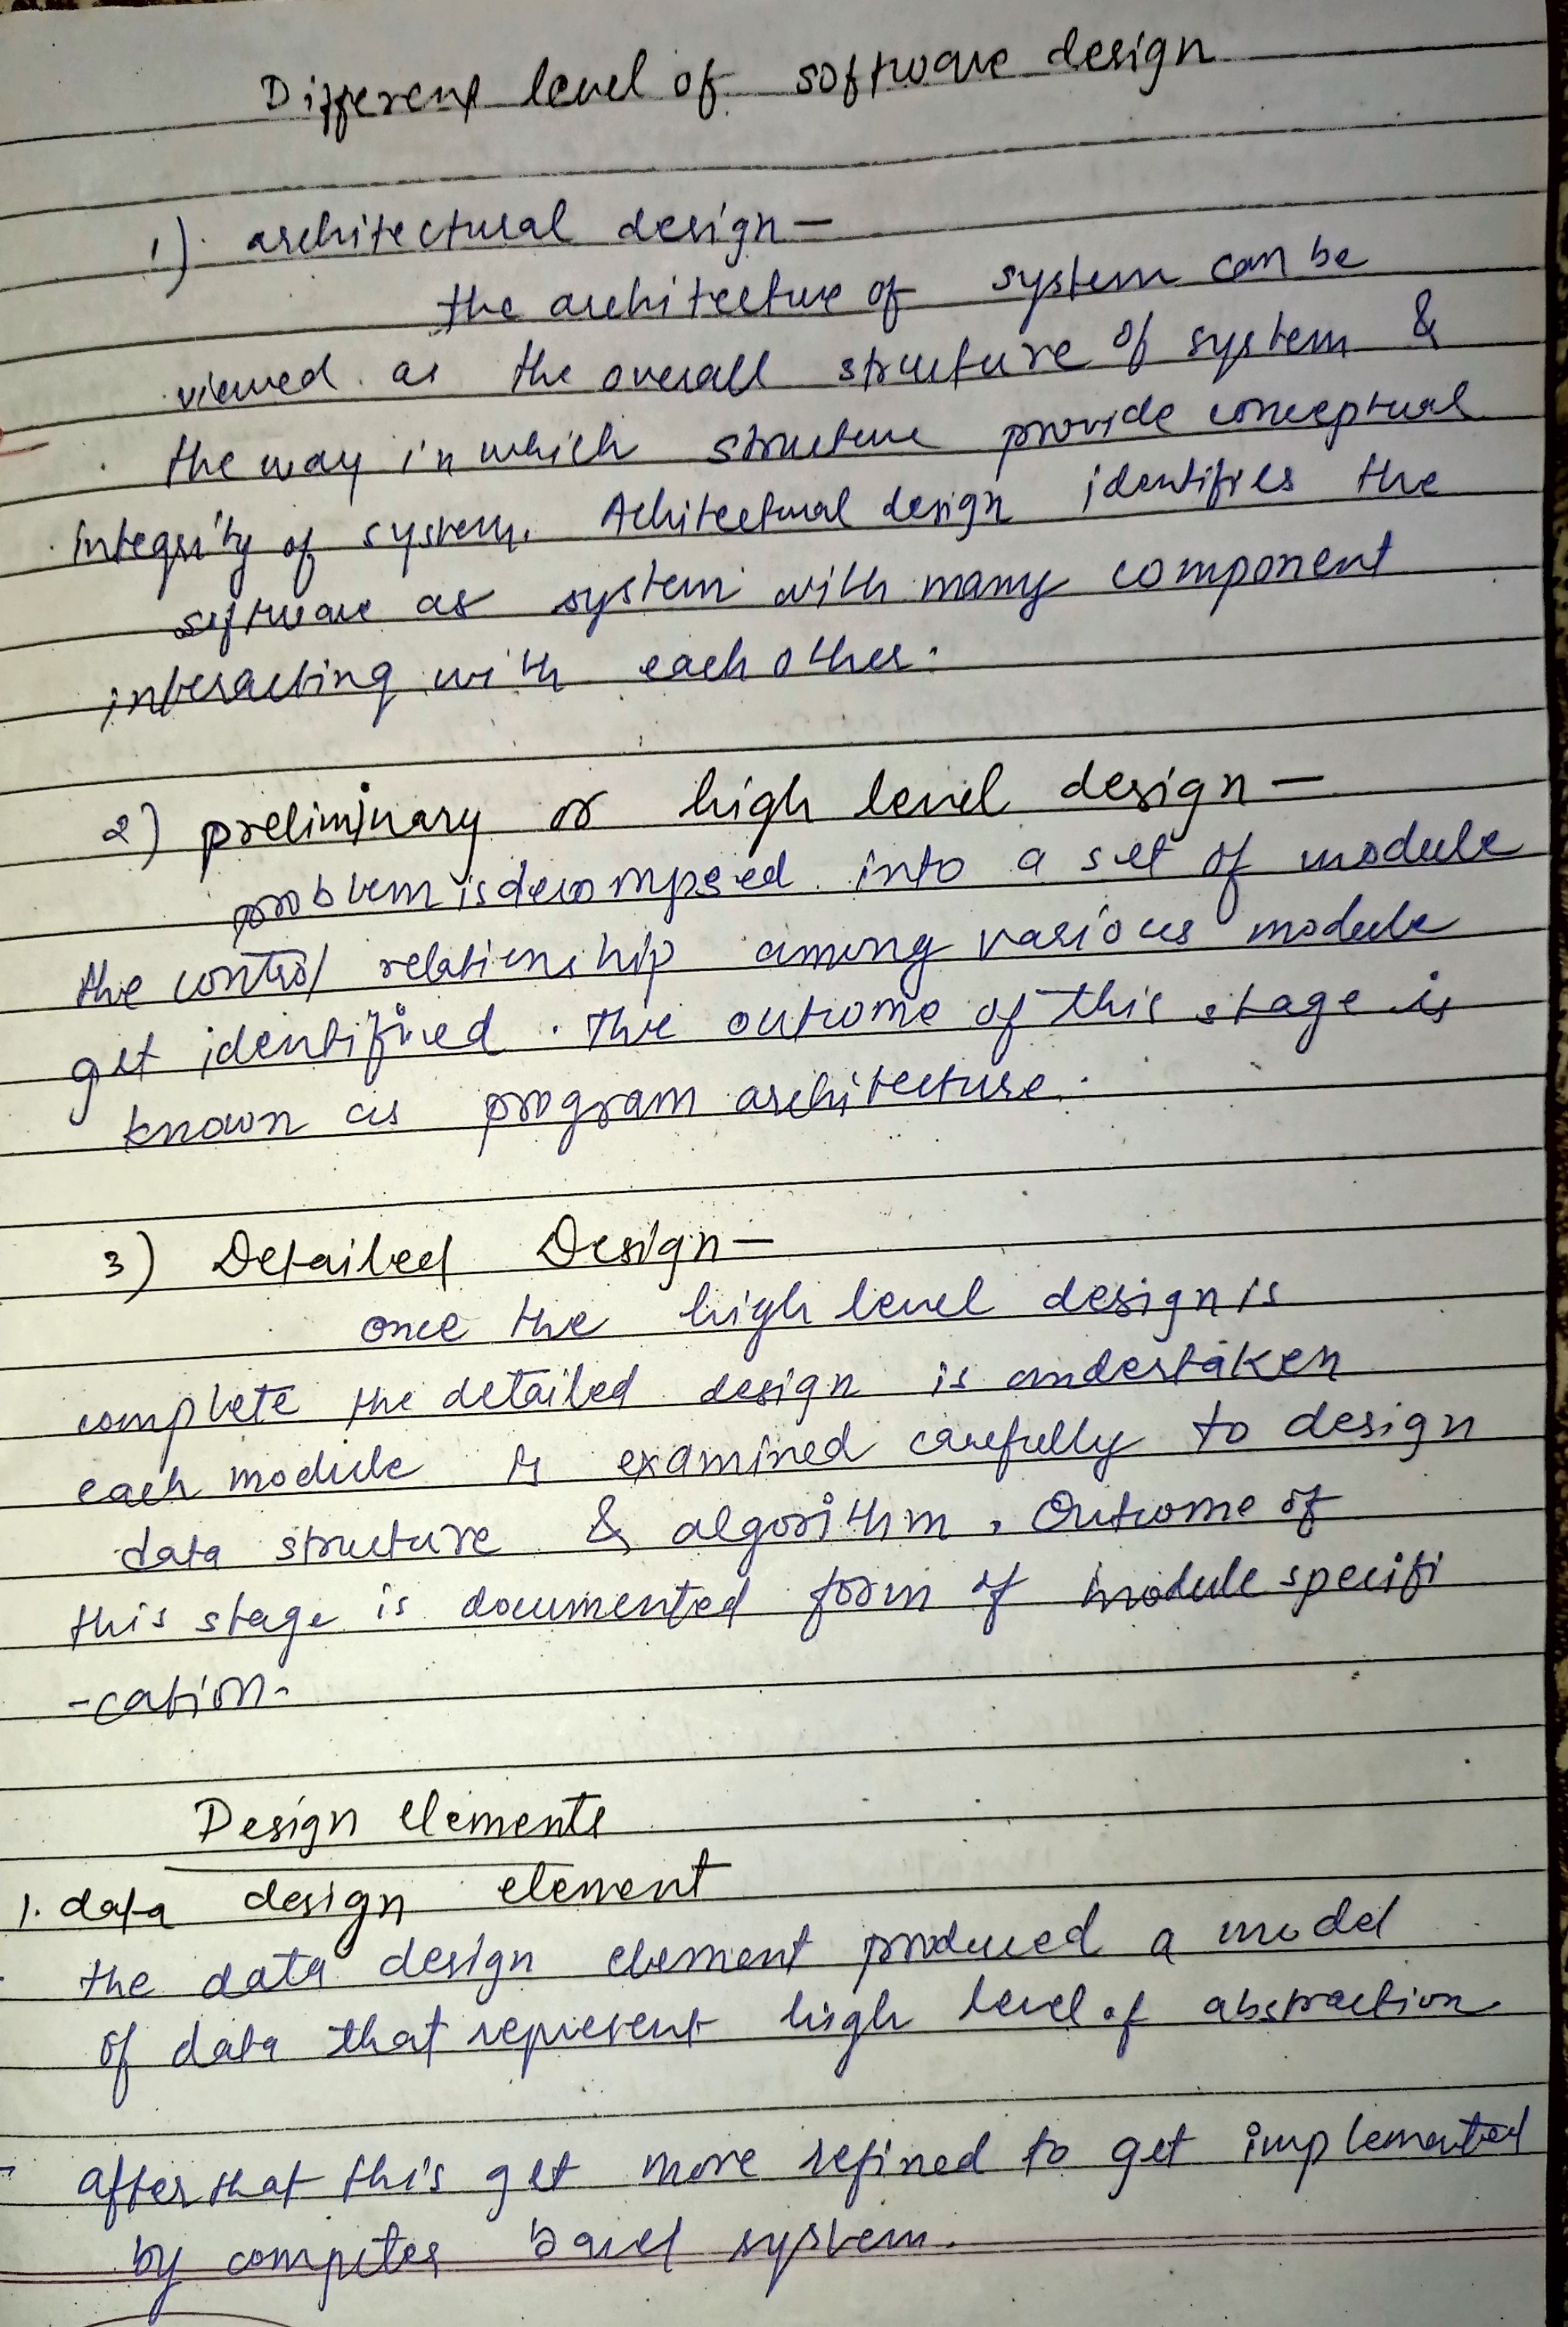 Different level of software design
1) architectural design-
the architecture of system can be
viewed as the overall structure of system &
the way in which structure provide conceptual
integrity of system. Achitectural design identifies the
software as system with many component
interacting with each other.
2) preliminary or high level design-
problem is decomposed into a set of module
the control relationship among various module
get identified. The outcome of this stage is
known as program architecture.
3) Detailed Design-
once the high level design is
complete the detailed design is undertaken
each module is examined carefully to design
data structure & algorithm. Outcome of
this stage is documented form of module specifi
-cation.
Design elements
1. data design element
the data design element produced a model
of data that represent high level of abstraction
- after that this get more refined to get implemented
by computer based system.